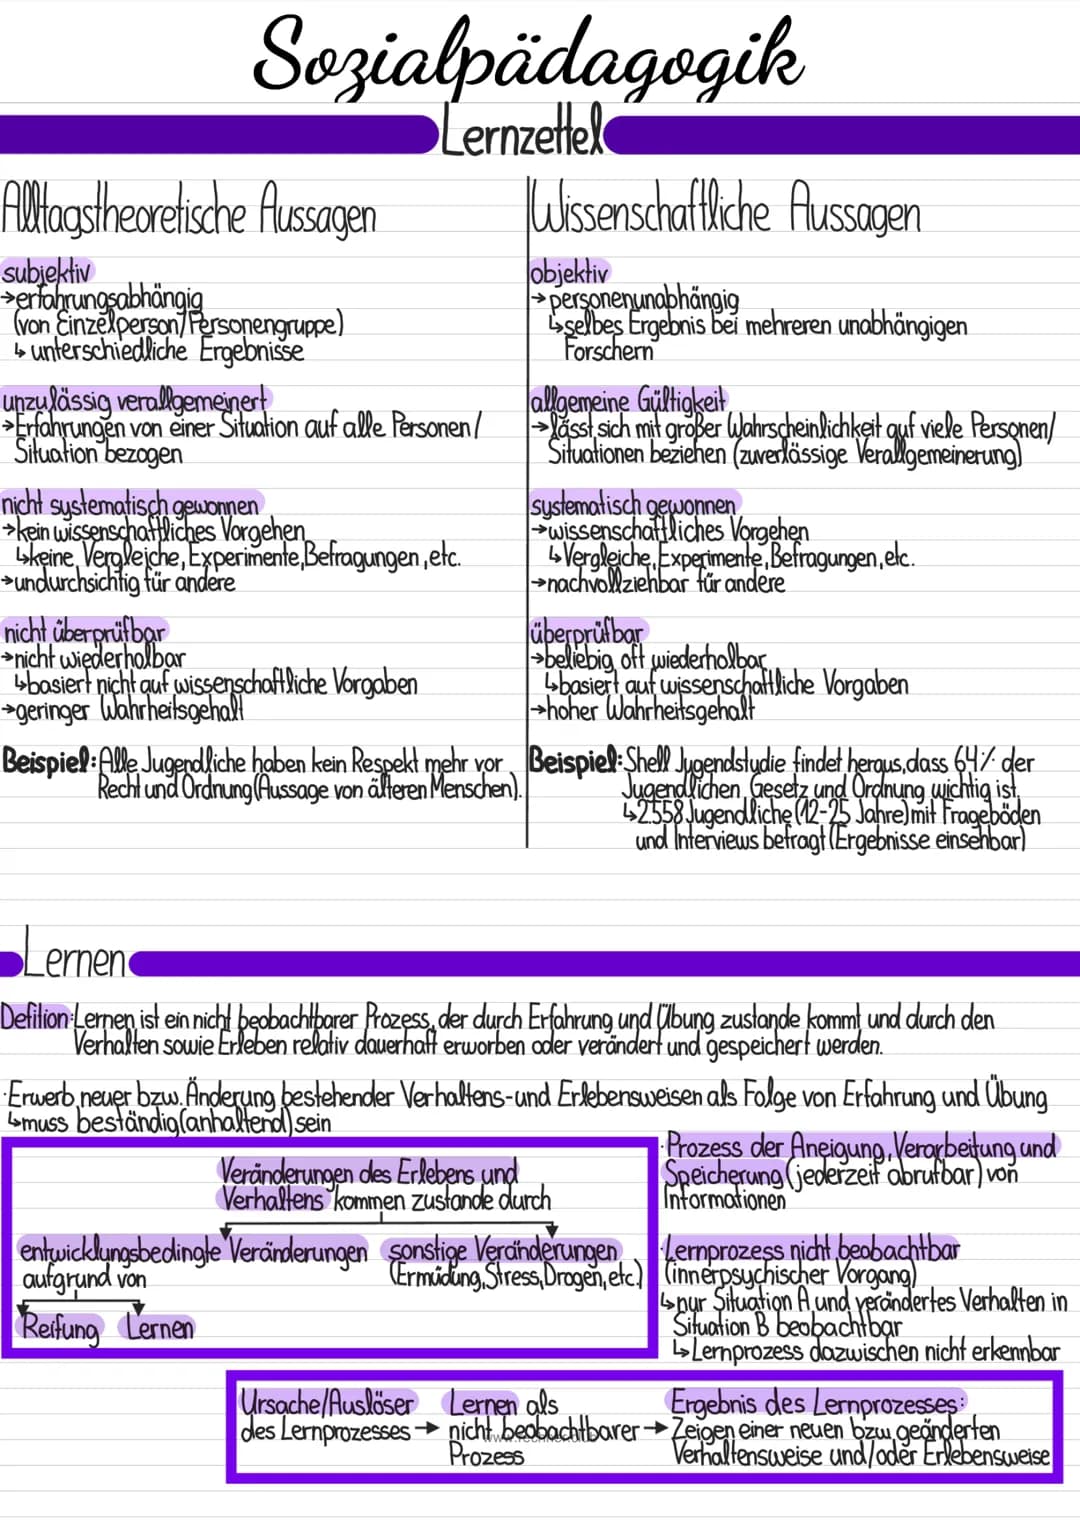 Sozialpädagogik
Lernzettel
Alltagstheoretische Aussagen
subjektiv
→erfahrungsabhängig
(von Einzelperson/Personengruppe)
↳ unterschiedliche Ergebnisse
unzulässig verallgemeinert
→Erfahrungen von einer Situation auf alle Personen/
Situation bezogen
nicht systematisch gewonnen
→kein wissenschaftliches Vorgehen
↳keine Vergleiche, Experimente, Befragungen, etc.
→undurchsichtig für andere
nicht überprüfbar
→nicht wiederholbar
↳basiert nicht auf wissenschaftliche Vorgaben
→geringer Wahrheitsgehalt
Beispiel: Alle Jugendliche haben kein Respekt mehr vor
Recht und Ordnung (Aussage von älteren Menschen).
Wissenschaftliche Aussagen
objektiv
→personenunabhängig
↳selbes Ergebnis bei mehreren unabhängigen
Forschern
allgemeine Gültigkeit
→lässt sich mit großer Wahrscheinlichkeit auf viele Personen/
Situationen beziehen (zuverlässige Verallgemeinerung)
systematisch gewonnen
→wissenschaftliches Vorgehen
↳Vergleiche, Experimente, Befragungen, etc.
→nachvollziehbar für andere
überprüfbar
→beliebig oft wiederholbar
↳basiert auf wissenschaftliche Vorgaben
→hoher Wahrheitsgehalt
Beispiel: Shell Jugendstudie findet heraus, dass 64% der
Jugendlichen Gesetz und Ordnung wichtig ist.
↳2.558 Jugendliche (12-25 Jahre) mit Frageböden
und Interviews befragt (Ergebnisse einsehbar)
Lernen
Defilion: Lernen ist ein nicht beobachtbarer Prozess, der durch Erfahrung und Übung zustande kommt und durch den
Verhalten sowie Erleben relativ dauerhaft erworben oder verändert und gespeichert werden.
·Erwerb neuer bzw. Änderung bestehender Verhaltens- und Erlebensweisen als Folge von Erfahrung und Übung
↳muss beständig (anhaltend) sein
Veränderungen des Erlebens und
Verhaltens kommen zustande durch
entwicklungsbedingte Veränderungen
aufgrund von
Reifung Lernen
sonstige Veränderungen
(Ermüdung, Stress, Drogen, etc.)
·Prozess der Aneigung, Verarbeitung und
Speicherung (jederzeit abrufbar) von
Informationen
·Lernprozess nicht beobachtbar
(innerpsychischer Vorgang)
↳nur Situation A und verändertes Verhalten in
Situation B beobachtbar
↳Lernprozess dazwischen nicht erkennbar
Ursache/Auslöser
des Lernprozesses →
Lernen als
nicht beobachtbarer →
Prozess
Ergebnis des Lernprozesses:
Zeigen einer neuen bzw. geänderten
Verhaltensweise und/oder Erlebensweise